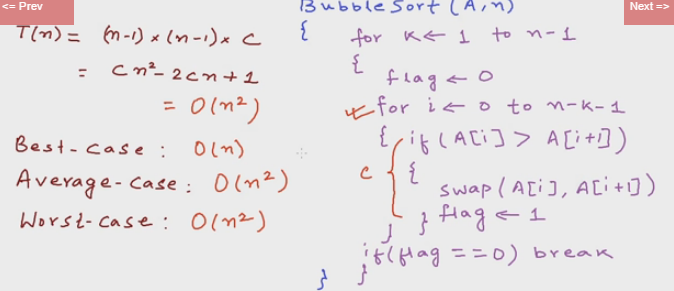 <= Prev
Next =>
T(n) = (n-1) x (n-1) x c
= cn² - 2cn + 1
= O(n²)
Best-case : O(n)
Average-case : O(n²)
Worst-case : O(n²)
BubbleSort (A,n)
{
for k ← 1 to n-1
{
flag ← 0
for i ← 0 to n-k-1
{ if (A[i] > A[i+1])
c {
swap (A[i], A[i+1])
} flag ← 1
}
if(flag == 0) break
}
}